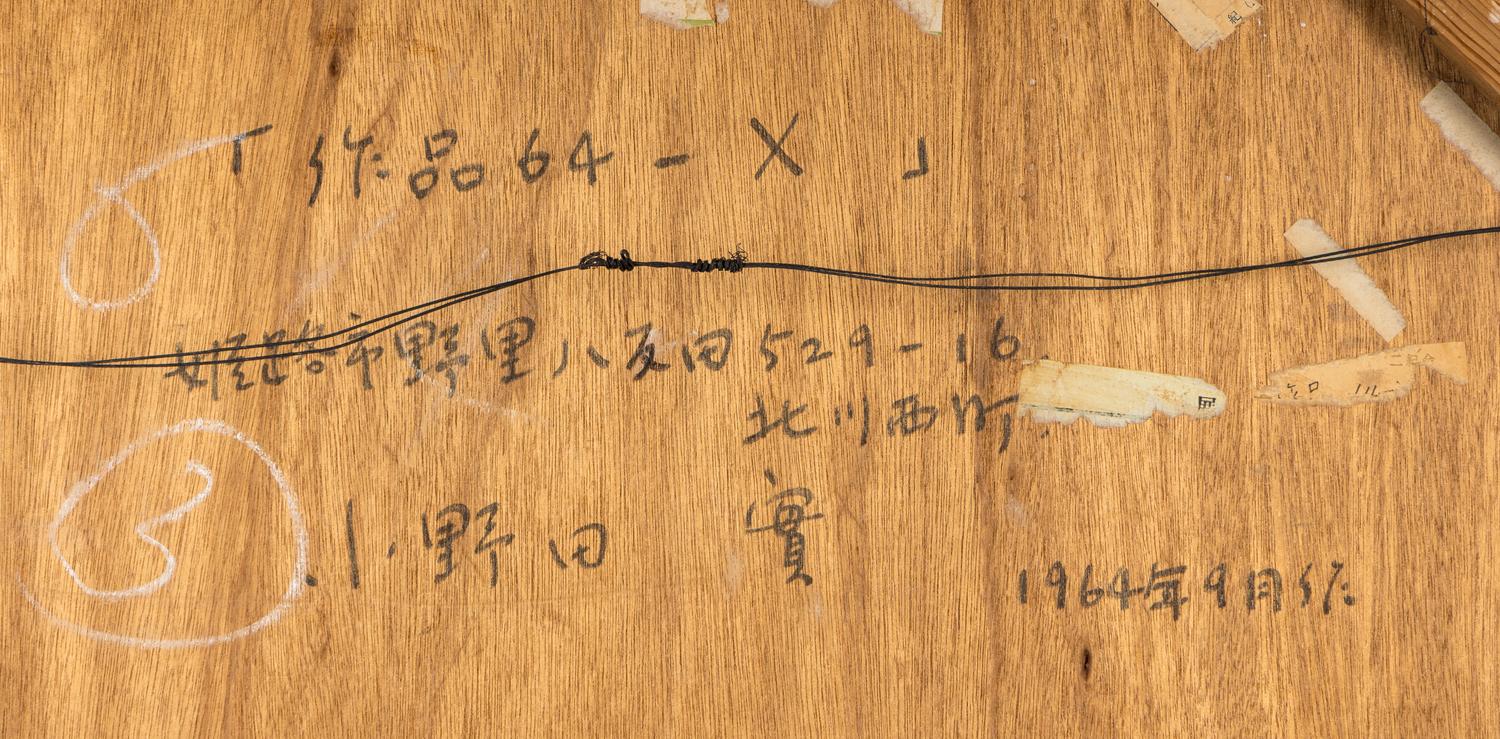 「作品64-X」
姫路市野里八反田529-16
北川西所
小野田 實
1964年9月作
6
3
紀
二紀会